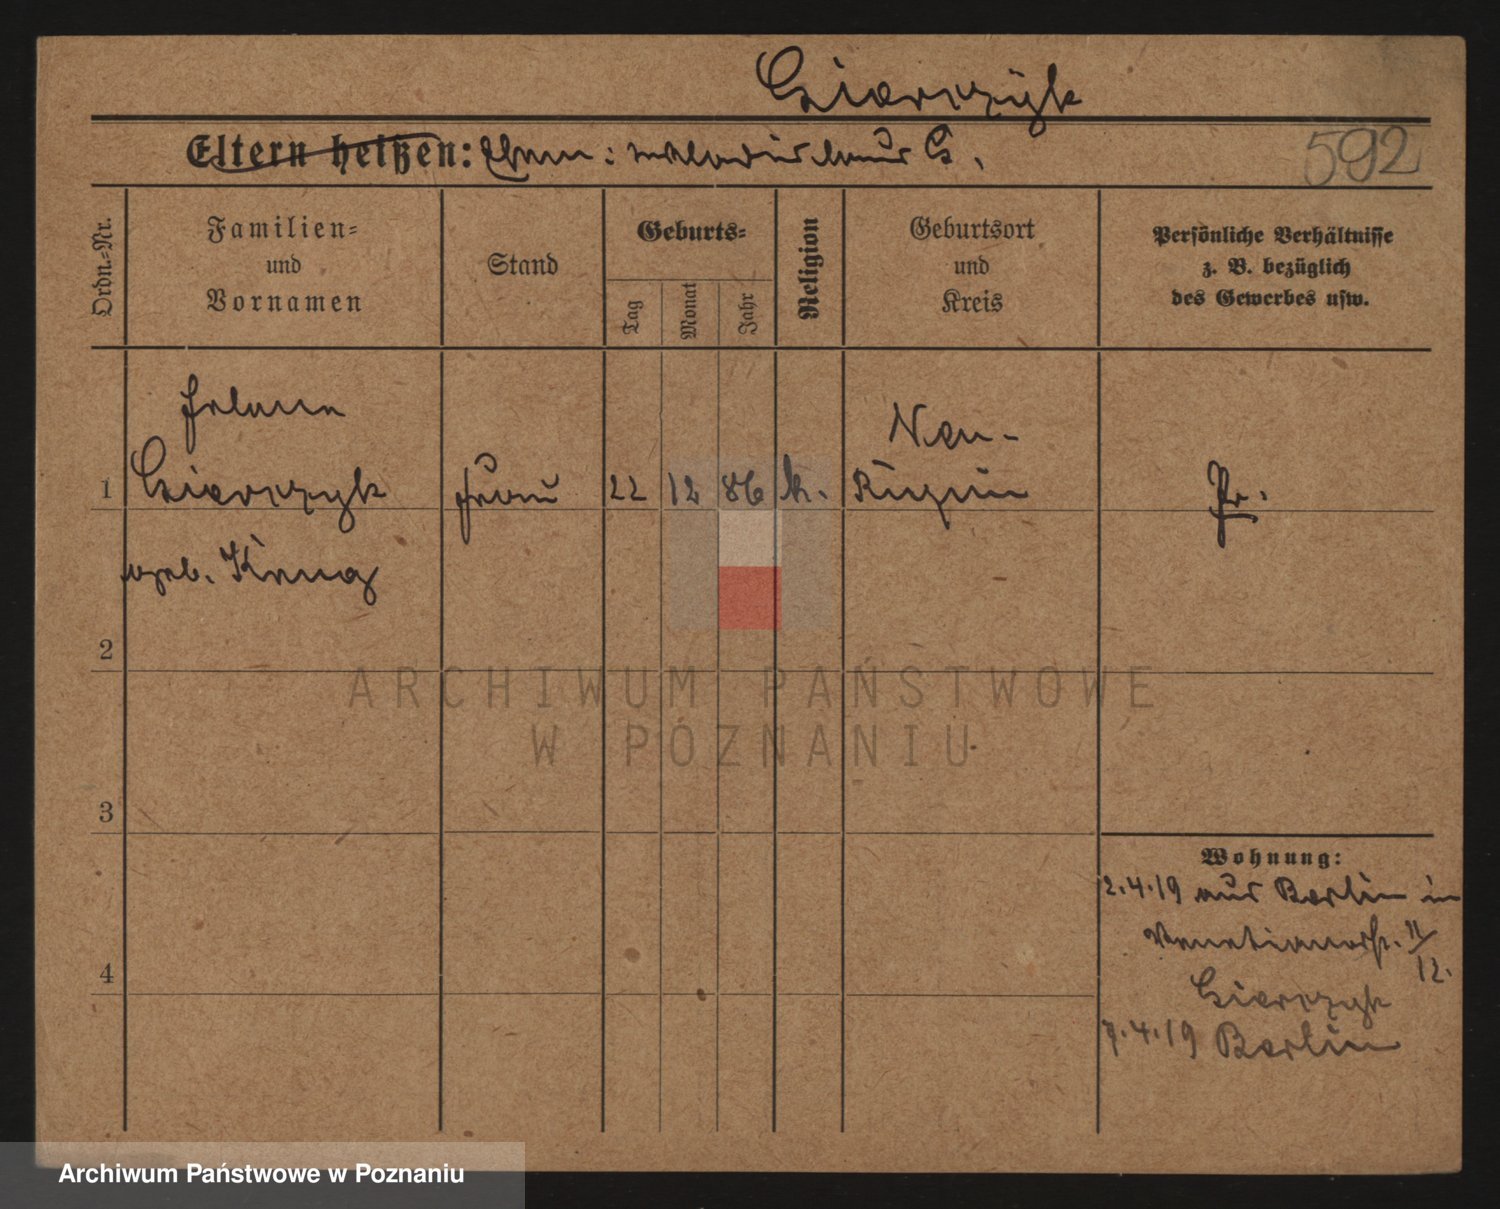 Gierczyk
Eltern heißen: Ehem: Wladislaus G.
592
Ordn.-Nr.
Familien-
und
Vornamen
Stand
Geburts-
Tag
Monat
Jahr
Religion
Geburtsort
und
Kreis
Persönliche Verhältnisse
z. B. bezüglich
des Gewerbes usw.
Helene
1 Gierczyk Frau 22 12 86 k. Neu-
Pr.
geb. Krug
2
3
4
Wohnung:
2.4.19 aus Berlin in
Venetianerstr. 11/
12.
Gierczyk
7.4.19 Berlin
ARCHIWUM PAŃSTWOWE
W POZNANIU
Archiwum Państwowe w Poznaniu